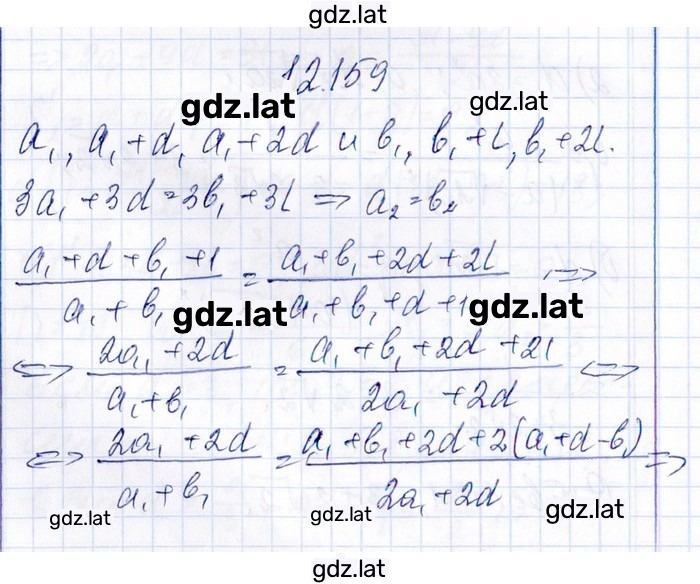 gdz.lat
12.159
gdz.lat gdz.lat
a₁, a₁+d, a₁+2d и b₁, b₁+l, b₁+2l.
3a₁+3d=3b₁+3l => a₂=b₂
(a₁+d+b₁+1)/(a₁+b₁) = (a₁+b₁+2d+2l)/(a₁+b₁+d+1) =>
gdz.lat gdz.lat
<=> (2a₁+2d)/(a₁+b₁) = (a₁+b₁+2d+2l)/(2a₁+2d) <=>
<=> (2a₁+2d)/(a₁+b₁) = (a₁+b₁+2d+2(a₁+d-b₁))/(2a₁+2d) =>
gdz.lat gdz.lat gdz.lat
gdz.lat